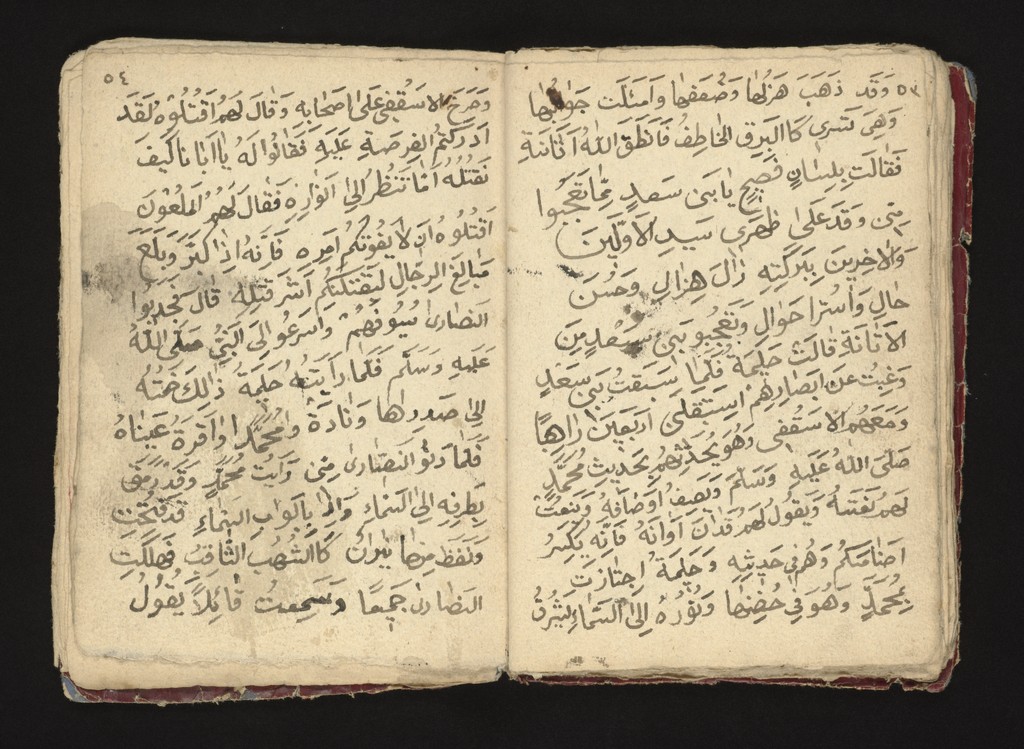 ٥٣
وقد ذهب هزلها وضعفها وامتلت جوانبها
وهى تسرى كاالبرق الخاطف فانطق الله اتانة
فقالت بلسان فصيح يا بنى سعد مما تعجبوا
منى وقد على ظهرى سيد الاولين
والاخرين ببركته زال هزالى وحسن
حالى وتعجبو بنى سعد من
الاتانة قالت حليمة فلما سبقت بنى سعد
وغبت عن ابصارهم استقلنى اربعين راهبا
ومعهم الاسقفى وهو يحدثهم بحديث محمد
صلى الله عليه وسلم ويصف اوصافه وينعت
لهم نعته ويقول لهم قد ان اوانه فانه يكسر
اصنامكم وهم فى حديثه وحليمة اجتازت
بمحمد وهو فى حضنها ونوره الى السماء يشرق
٥٤
وصرخ الاسقفى على اصحابه وقال لهم اقتلوه لقد
ادركتم الفرصة عليه فقالوا له يا ابانا كيف
نقتله اما تنظر الى انواره فقال لهم الملعون
اقتلوه ان لا يفوتكم امره فانه اذا كبر وبلغ
مبالغ الرجال ليقتلنكم اشر قتله قال فجدبوا
النصارى سيوفهم واسرعو الى النبى صلى الله
عليه وسلم فلما راينه حليمة ذالك ضمته
الى صدرها ونادة وا محمدا وا قرة عيناه
فلما دنو النصارى منى رايت محمد وقد رمق
بطرفه الى السماء واذا بابواب السماء قد فتحت
ولفظ منها نيران كاالشهب الثاقب فهلكت
النصارى جميعا وسمعت قائلا يقول